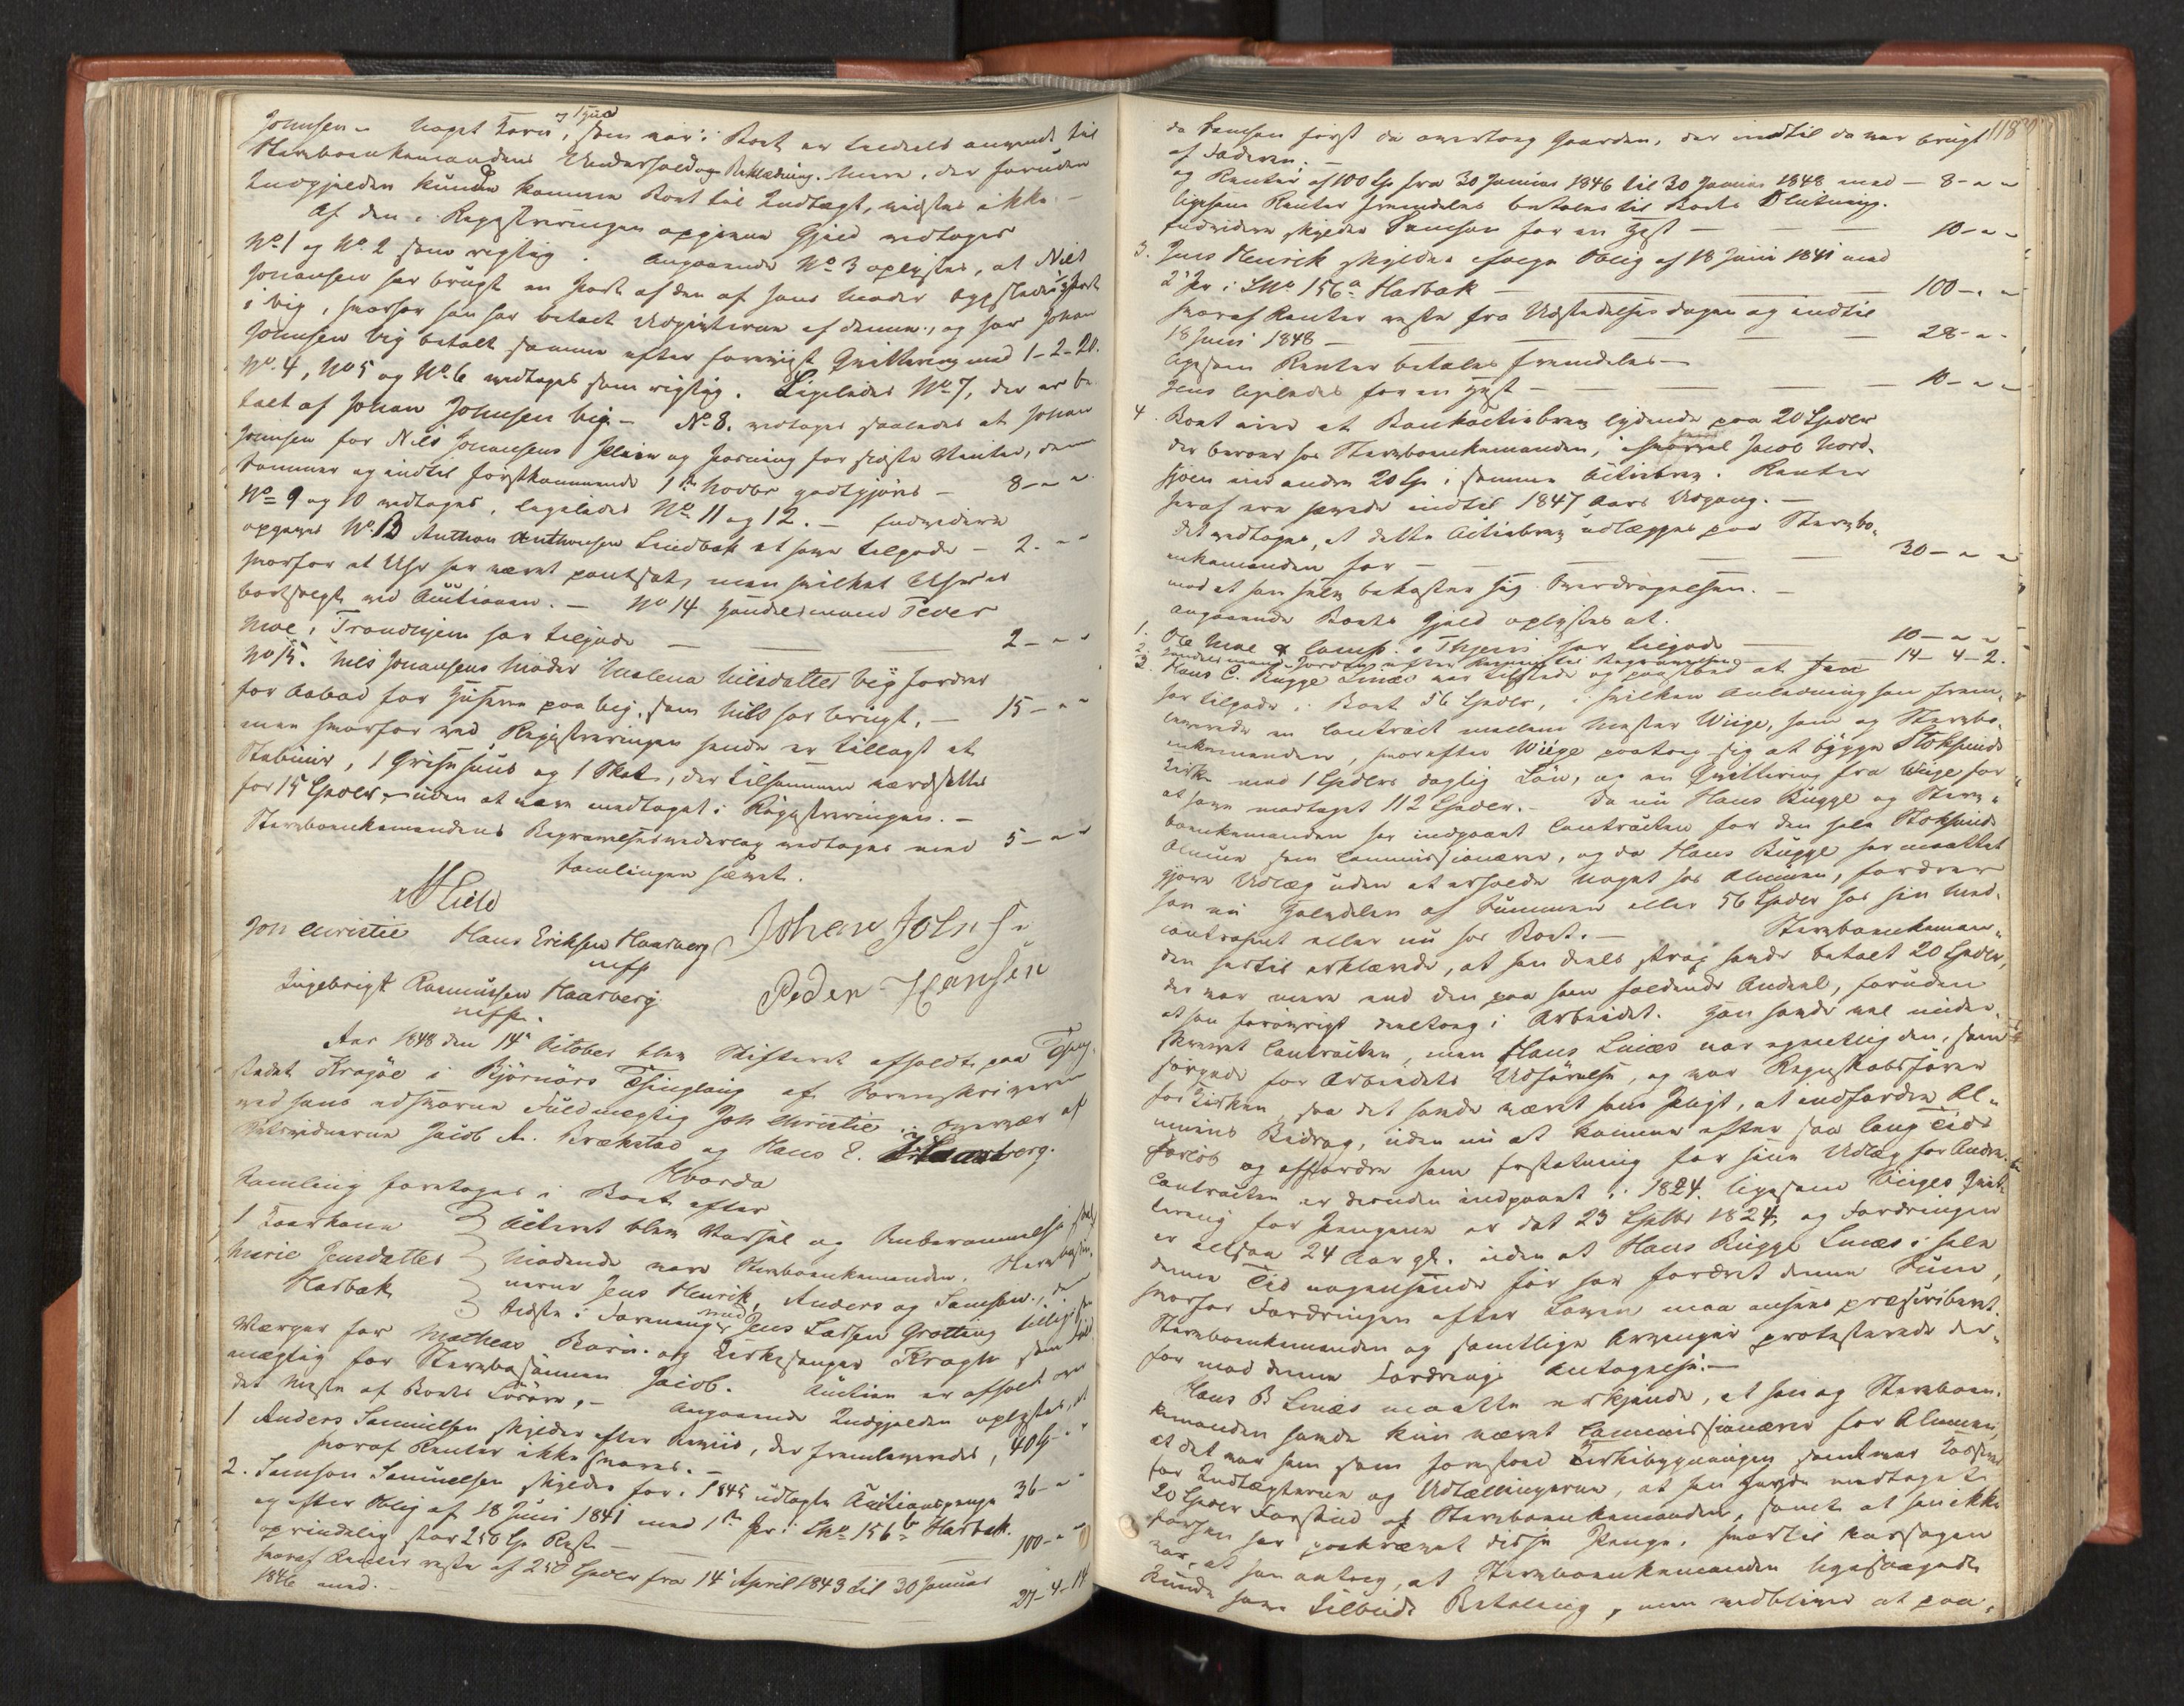 Johnsen - noget Korn, og Hud som var i Boet er tildeels anvendt til
Stervboenkemandens Underhold og Beklædning. Mere, der foruden
Indgjelden kunde komme Boet til Indtægt, vidstes ikke. -
Af den i Registreringen opgivne Gjæld vedtoges
No 1 og No 2 som rigtig. Angaaende No 3 oplystes, at Nils
Johansen har brugt en Part af den af hans Moder
i Vig, hvorfor han har betalt Udgifterne af denne, og har Johan
Johnsen Vig betalt samme efter foreviist Qvittering med 1-2-20.
No 4, No 5 og No 6 vedtoges som rigtig. Ligeledes No 7, der er be-
talt af Johan Johnsen Vig. - No 8. vedtoges saaledes at Johan
Johnsen for Nils Johansens Pleie og Foering for sidste Vinter, denne
Sommer og indtil førstkommende 1ste Novbr godtgjøres - 8 - " "
No 9 og 10 vedtoges, ligeledes No 11 og 12. - Endvidere
opgaves No 13 Anthon Anthonsen Lindbak at have tilgode - 2 - " "
hvorfor et Uhr har været pantsat, men hvilket Uhr er
bortsolgt ved Auctionen. - No 14 Handelsmand Peder
Moe i Trondhjem har tilgode - 2 - " "
No 15. Nils Johansens Moder Malena Nilsdatter Vig fordrer
for Aabod for Husene paa Vig, som Nils har brugt. - 15 - " "
men hvorfor ved Registreringen hende er tillagt et
Stabuur, 1 Grisehuus og 1 Skot, der tilsammen værdsattes
for 15 Spdlr, uden at være medtaget i Registreringen. -
Stervboenkemandens Begravelsesudlæg vedtoges med 5 - " "
Samlingen hævet.
Jon Christie Hans Eriksen Haarberg Johan Johnsen
mfp
Ingebrigt Rasmussen Haarberg Peder Hansen
mfp.
Aar 1848 den 14de October blev Skifteret afholdt paa Thing-
stedet Kragøe i Bjørnørs Thinglaug af Sorenskriveren
ved hans edsvorne Fuldmægtig Jon Christie i Overvær af
Retsvidnerne Jacob A. Brækstad og Hans E. Haarberg.
Hvorda
Samling foretoges i Boet efter
1 Kaarkone Acteret blev Varsel og Berammelse
Marie Jensdatter Mødende vare Stervboenkemanden.
Harbak nerne Jens Henrik, Anders og Samson, den
sidste i Forening med Jens Larsen Grøtting tillige som
Værger for Matheas Børn. og Kirkesanger Krogh som Fuld-
mægtig for Sterbosønnen Jacob. Auction er afholdt over
det meste af Boets Løsøre, - Angaaende Indgjelden oplystes, at
1 Anders Samuelsen skylder efter Beviis, der fremlagdes, 40 Sp - "
hvoraf Renter ikke svares. -
2. Samson Samuelsen skylder for i 1845 udlagte Auctionspenge 36 - "
og efter Oblig af 18 Juni 1841 med 1ste Pr i LNo 156b Harbak.
oprindelig stor 250 Sp Rest - 100 - " "
hvoraf Renter reste af 250 Spdlr fra 14 April 1843 til 30 Januar
1846 med. - 27-4-14
118
da Samson først da overtog Gaarden, der indtil da var brugt
af Faderen. -
og Renter af 100 Sp fra 30 Januar 1846 til 30 Januar 1848 med - 8 - " "
ligesom Renter fremdeles betales til Boets Slutning.
Endvidere skylder Samson for en Hest - 10 - " "
3. Jens Henrik skylder ifølge Oblig af 18 Juni 1841 med
2 Pr i LNo 156a Harbak - 100 - " "
hvoraf Renter reste fra Udstedelses dagen og indtil
18 Juni 1848 - 28 - "
ligesom Renter betales fremdeles -
Jens ligeledes for en Hest - 10 - " "
4. Boet eier et Bankactiebrev lydende paa 20 Spdlr
der beroer hos Stervboenkemanden, i hvormed Jacob Nord-
sjøen eier andre 20 Sp i samme Actiebrev. Renter
heraf ere hævede indtil 1847 Aars Udgang. -
det vedtoges, at dette Actiebrev udlægges paa Sterbo-
enkemanden for - 30 - " "
mod at han selv bekoster sig Overdragelsen. -
angaaende Boets Gjæld oplystes at.
1. Ole Moe & Comp. i Thjem har tilgode - 10 - " "
2. Handelsmand Jordan efter Regning til Begravelsen - 14-4-2.
3. Hans C. Bugge Linæs var tilstede og paastod at han
har tilgode i Boet 56 Spdlr, i hvilken Anledning han frem-
leverede en Contract mellem Mester Wiige, ham og Sterbo-
enkemanden, hvorefter Wiige paatog sig at bygge Stoksunds
Kirke med 1 Spdlrs daglig Løn, og en Qvittering fra Wiige for
at have modtaget 112 Spdlr. - Da nu Hans Bugge og Sterv-
boenkemanden har indgaaet Contracten for den hele Stoksunds
Almue som Commissionærer, og da Hans Bugge har maattet
gjøre Udlæg uden at erholde noget hos Almuen, fordrer
han nu Halvdelen af Summen eller 56 Spdlr hos sin Med-
contrahent eller nu hos Boet. - Sterboenkeman-
den hertil erklærede, at han deels strax havde betalt 20 Spdlr,
der var mere end den paa ham faldende Andeel, foruden
at han forøvrigt deeltog i Arbeidet. Han havde vel under-
skrevet Contracten, men Hans Linæs var egentlig den, som
sørgede for Arbeidets Udførelse, og var Regnskabsfører
for Kirken, saa det havde været hans Pligt, at indfordre Al-
muens Bidrag, uden nu at komme efter saa lang Tids
Forløb og affordre ham Erstatning for sine Udlæg for Andre.
Contracten er desuden indgaaet i 1824. ligesom Wiiges Qvit-
tering for Pengene er dat 23 Septbr 1824, og Fordringen
er altsaa 24 Aar gl. uden at Hans Bugge Linæs i hele
denne Tid nogensinde før har fordret denne Sum,
hvorfor Fordringen efter Loven maa ansees præscriberet.
Sterboenkemanden og samtlige Arvinger protesterede der-
for mod denne Fordrings Antagelse. -
Hans B Linæs maatte erkjende, at han og Sterboen-
kemanden havde kun været Commissionærer for Almuen,
at det var ham som forestod Kirkebygningen samt var Kasserer
for Indtægterne og Udtællingerne, at han havde modtaget
20 Spdlr Forskud af Sterboenkemanden, samt at han ikke
forhen har paakrævet disse Penge, hvortil Aarsagen
var, at han antog, at Sterboenkemanden ligesaagodt
kunde have tilbudt Betaling, men vedbliver at paa-